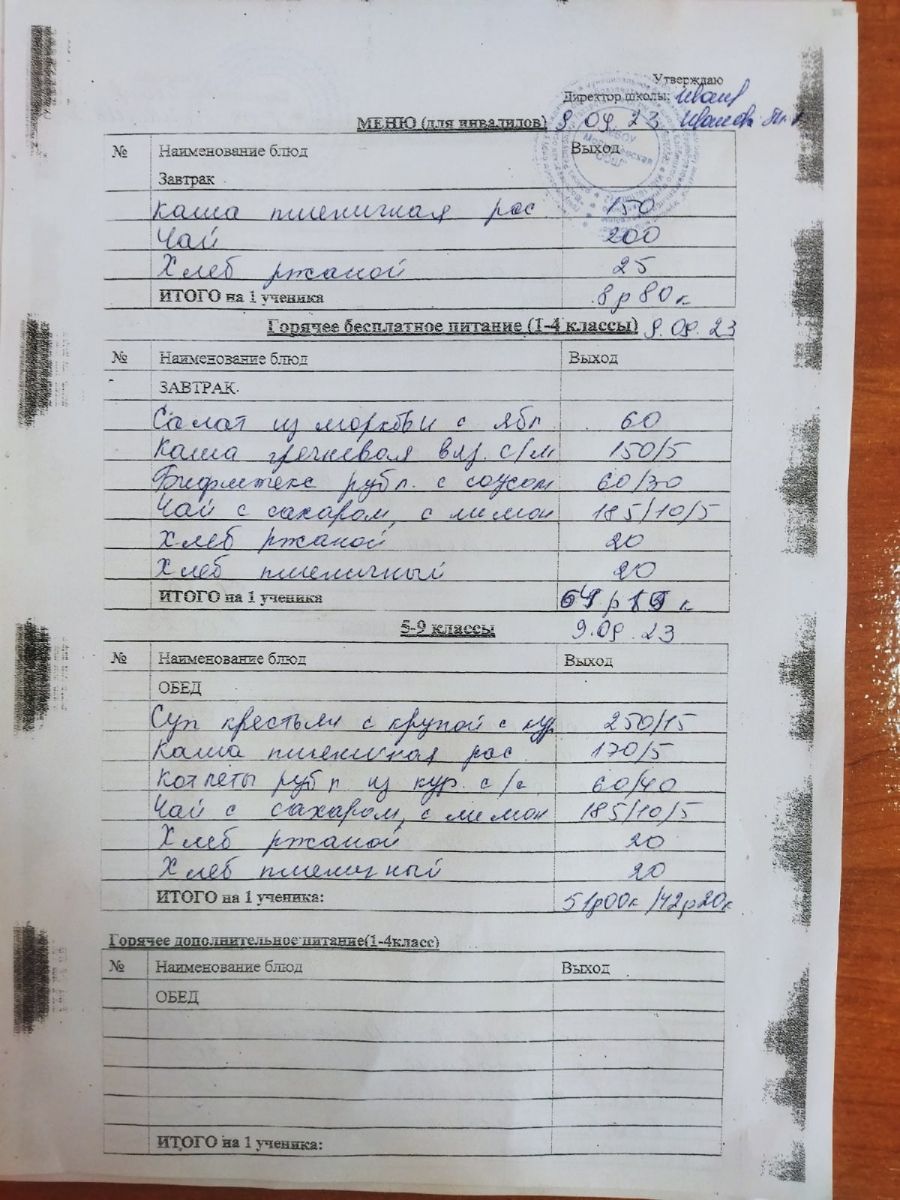 Утверждаю
Директор школы:
МЕНЮ (для инвалидов) 9.09.23
№ Наименование блюд Выход
Завтрак
Каша пшеничная рас 150
Чай 200
Хлеб ржаной 25
ИТОГО на 1 ученика 8р80к
Горячее бесплатное питание (1-4 классы) 9.09.23
№ Наименование блюд Выход
ЗАВТРАК
Салат из моркови с ябл 60
Каша гречневая вяз. с/м 150/5
Бифштекс рубл. с соусом 60/30
Чай с сахаром, с лимон 185/10/5
Хлеб ржаной 20
Хлеб пшеничный 20
ИТОГО на 1 ученика
5-9 классы 9.09.23
№ Наименование блюд Выход
ОБЕД
Суп крестьян с крупой с кур 250/15
Каша пшеничная рас 170/5
Котлеты рубл из кур. с/с 60/40
Чай с сахаром, с лимон 185/10/5
Хлеб ржаной 20
Хлеб пшеничный 20
ИТОГО на 1 ученика: 51р00к/42р20к
Горячее дополнительное питание(1-4класс)
№ Наименование блюд Выход
ОБЕД
ИТОГО на 1 ученика: